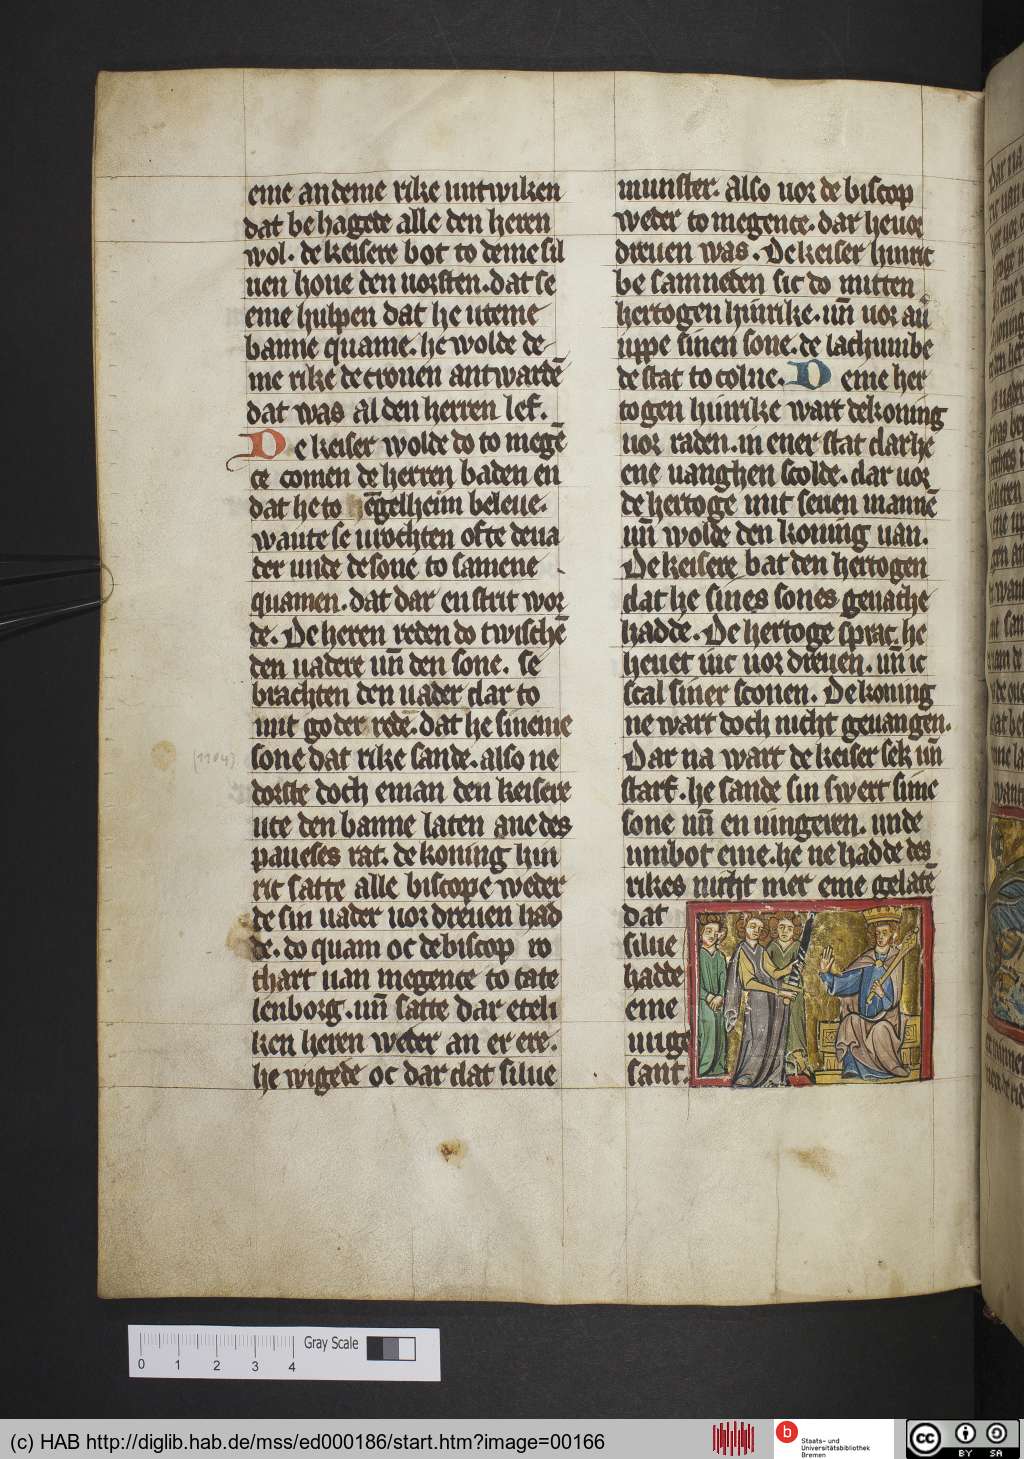 eme an deme rike untwiken
dat be hagete alle den heren
wol. de keisere bot to deme sil
uen houe den uorsten. dat se
eme hulpen dat he uteme
banne quame. he wolde de
me rike de trouen antwardē
dat was al den herren lef.
De keiser wolde do to megē
ce comen de herren baden en
dat he to hēgelheim beleue.
wante se urochten ofte deua
der unde de sone to samene
quamen. dat dar en strit wor
de. De heren reden do twischē
den uadere uñ den sone. se
brachten den uader dar to
mit goder redē. dat he sineme
sone dat rike sande. also ne
dorste doch eman den keisere
ute den banne laten ane des
paueses rat. de koning hin
ric satte alle biscope weder
de sin uader uor dreuen had
de. do quam oc de biscop ro
thart uan megence to tate
lenborg. uñ satte dar eteli
ken heren weder an er ere.
he wigede oc dar dat silue
munster. also uor de biscop
weder to megence. dar he uor
dreuen was. De keiser hinric
be samneden sic do mitten
hertogen hinrike. uñ uor an
uppe sinen sone. de lach umbe
de stat to colne. Deme her
togen hinrike wart de koning
uor raden. in ener stat dar he
ene uanghen scolde. dar uor
de hertoge mit seuen mannē
uñ wolde den koning uan.
De keisere bat den hertogen
dat he sines sones genathe
hadde. De hertoge sprac. he
heuet mic uor dreuen. uñ ic
scal siner sconen. De koning
ne wart doch nicht geuangen.
Dar na wart de keiser sek uñ
starf. he sande sin swert sime
sone uñ en uingeren. unde
umbot eme. he ne hadde des
rikes nicht mer eme gelatē
dat
silue
hadde
eme
unge
sant.
(1104)
0 1 2 3 4
Gray Scale
(c) HAB http://diglib.hab.de/mss/ed000186/start.htm?image=00166
b
Staats- und
Universitätsbibliothek
Bremen
cc
BY SA